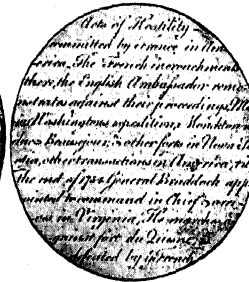 Acts of Hostility
committed by France in Am
erica. The French incroachments
there, the English Ambassador remo
nstrates against their proceedings. M
Washingtons expedition, Monckton
Beausejour, & other forts in Nova S
other transactions in America,
The end of 1754 General Braddock app
ointed to command in Chief
in Virginia, He marches
against fort du Quesne
defeated by French